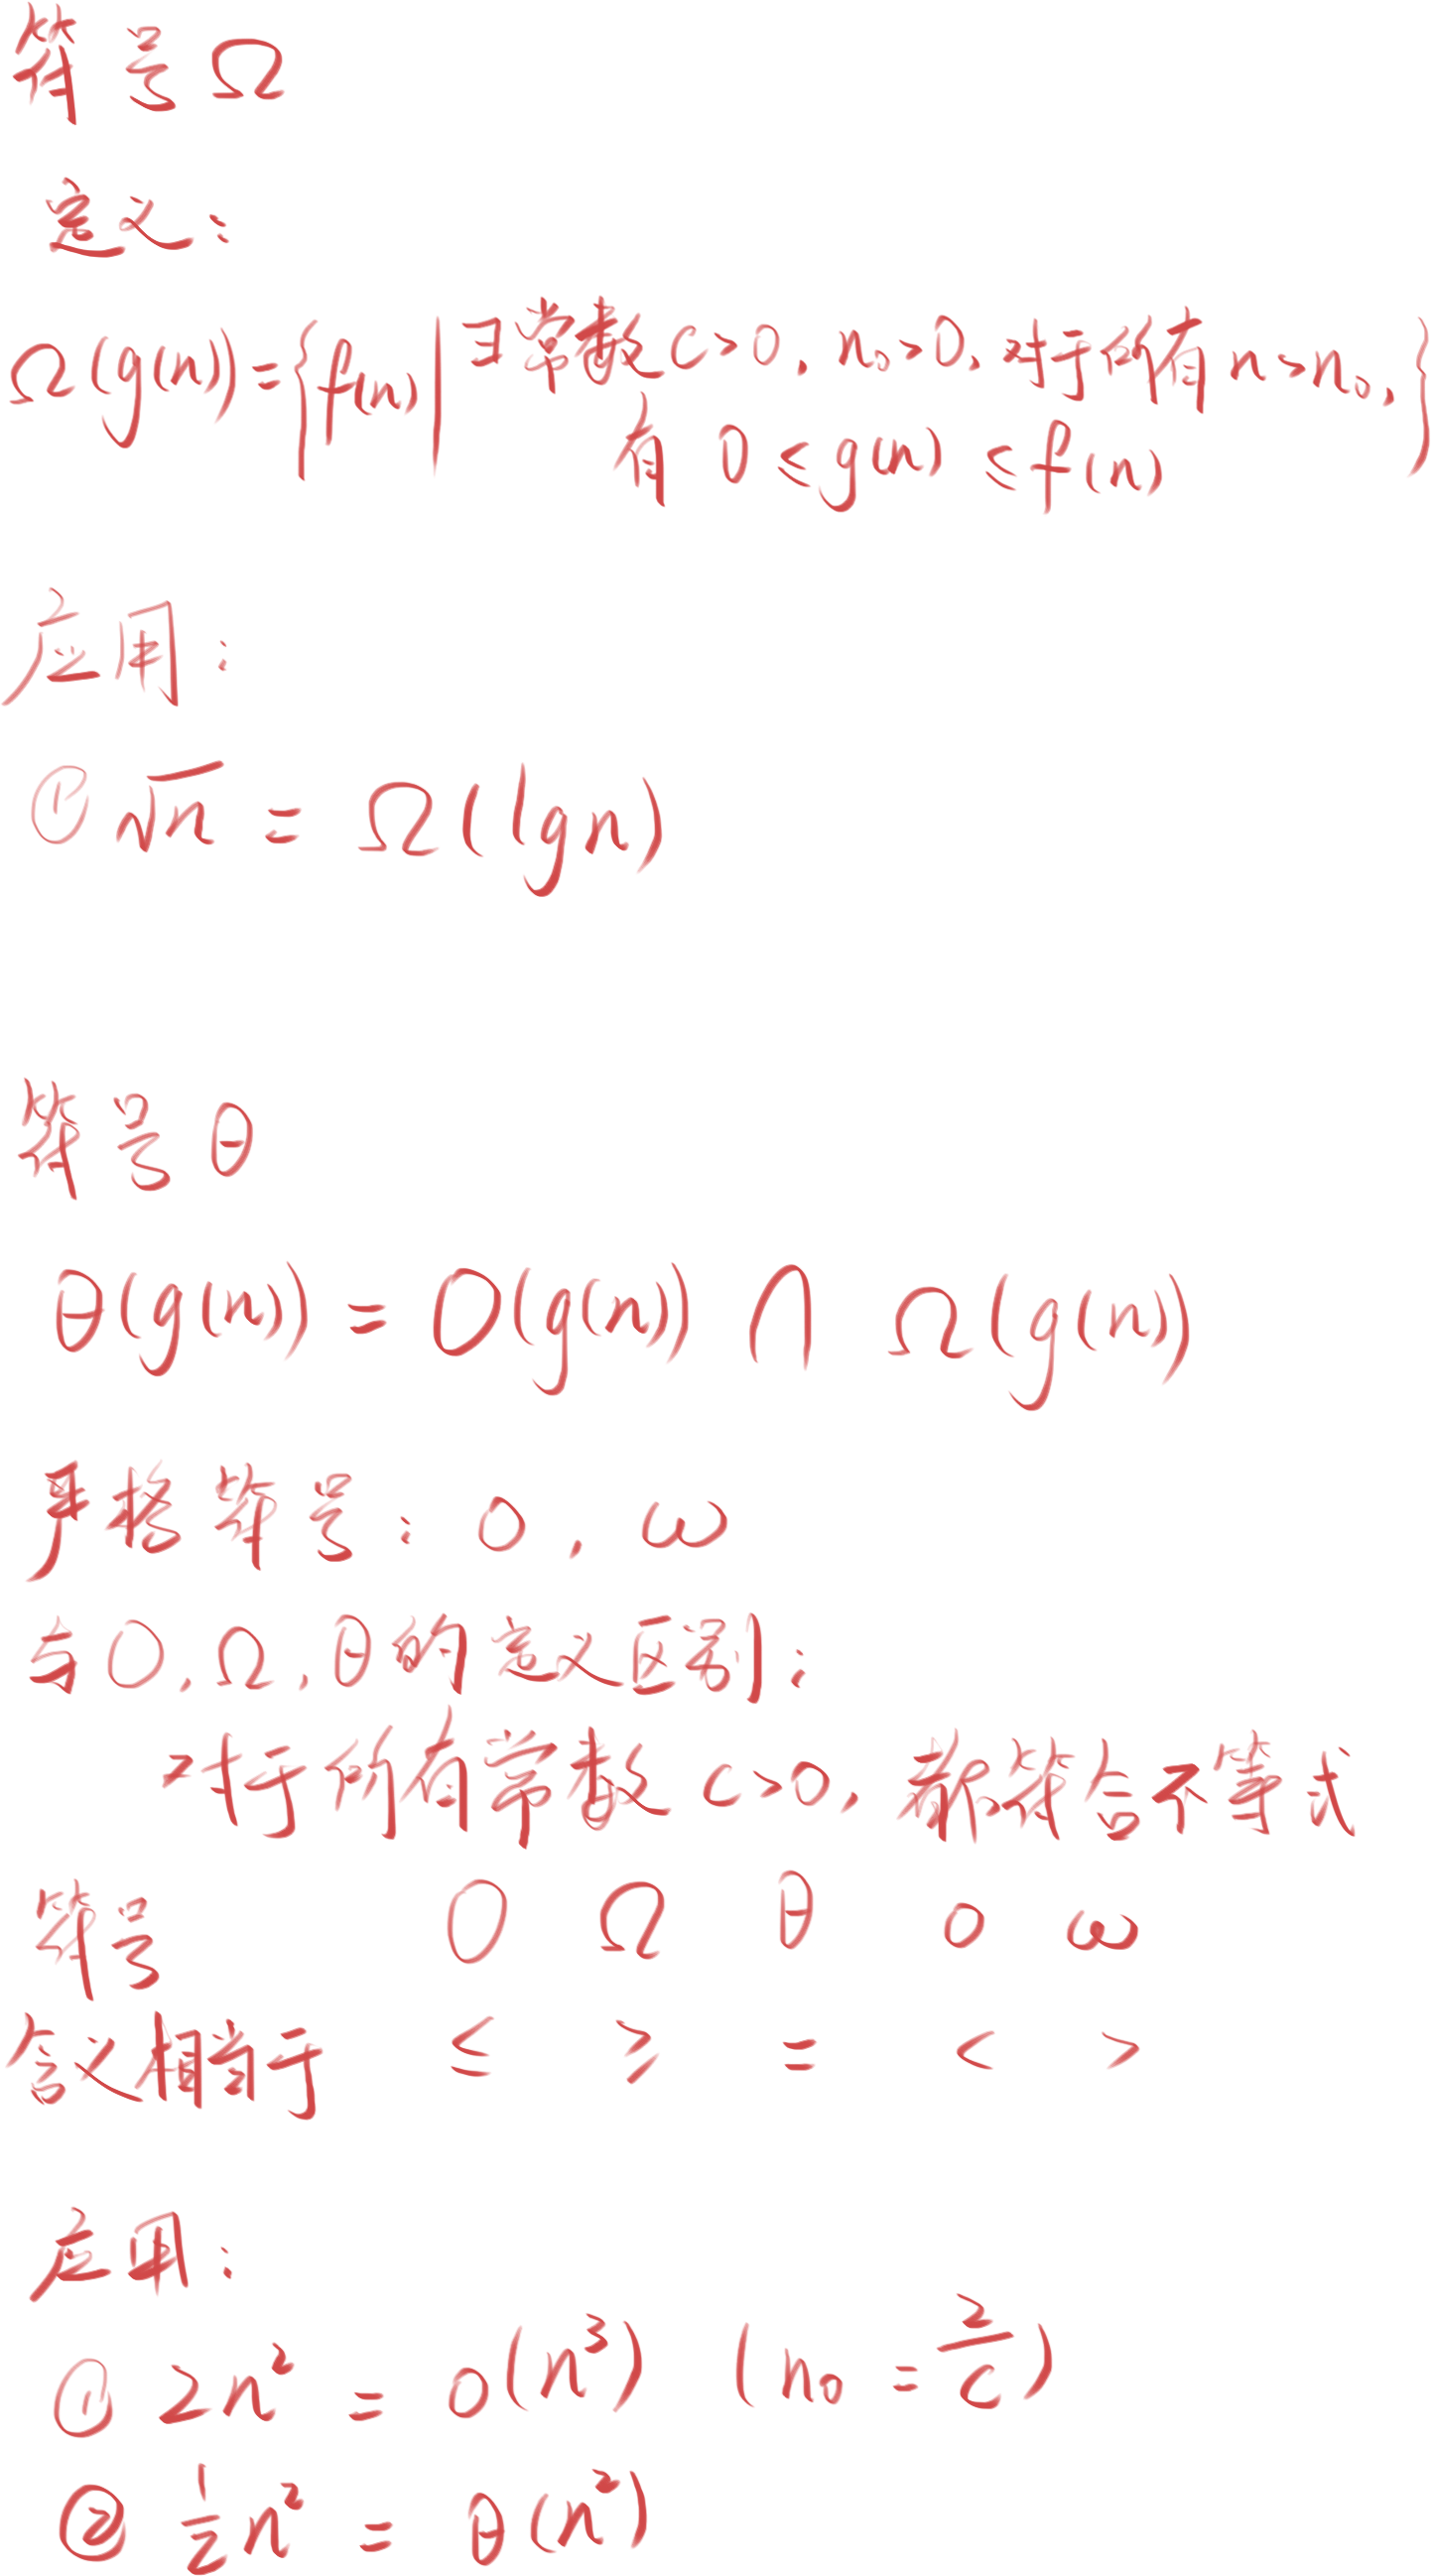 符号Ω
定义：
Ω(g(n))={f(n)|∃常数c>0,n₀>0,对于所有n>n₀,}
有 0≤g(n)≤f(n)
应用：
① √n = Ω(lgn)
符号θ
θ(g(n)) = O(g(n)) ∩ Ω(g(n))
严格符号：o, ω
与O,Ω,θ的定义区别：
对于所有常数c>0,都符合不等式
符号 O Ω θ o ω
含义相当于 ≤ ≥ = < >
应用：
① 2n² = o(n³) (n₀=2/c)
② 1/2n² = θ(n²)